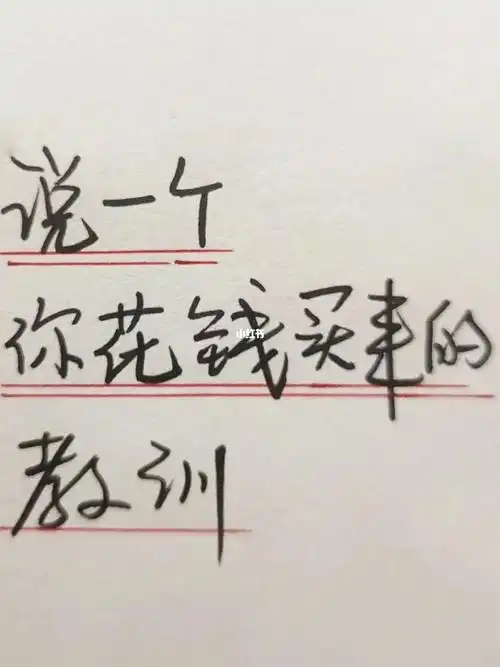 说一个
你花钱买来的
小红书
教训